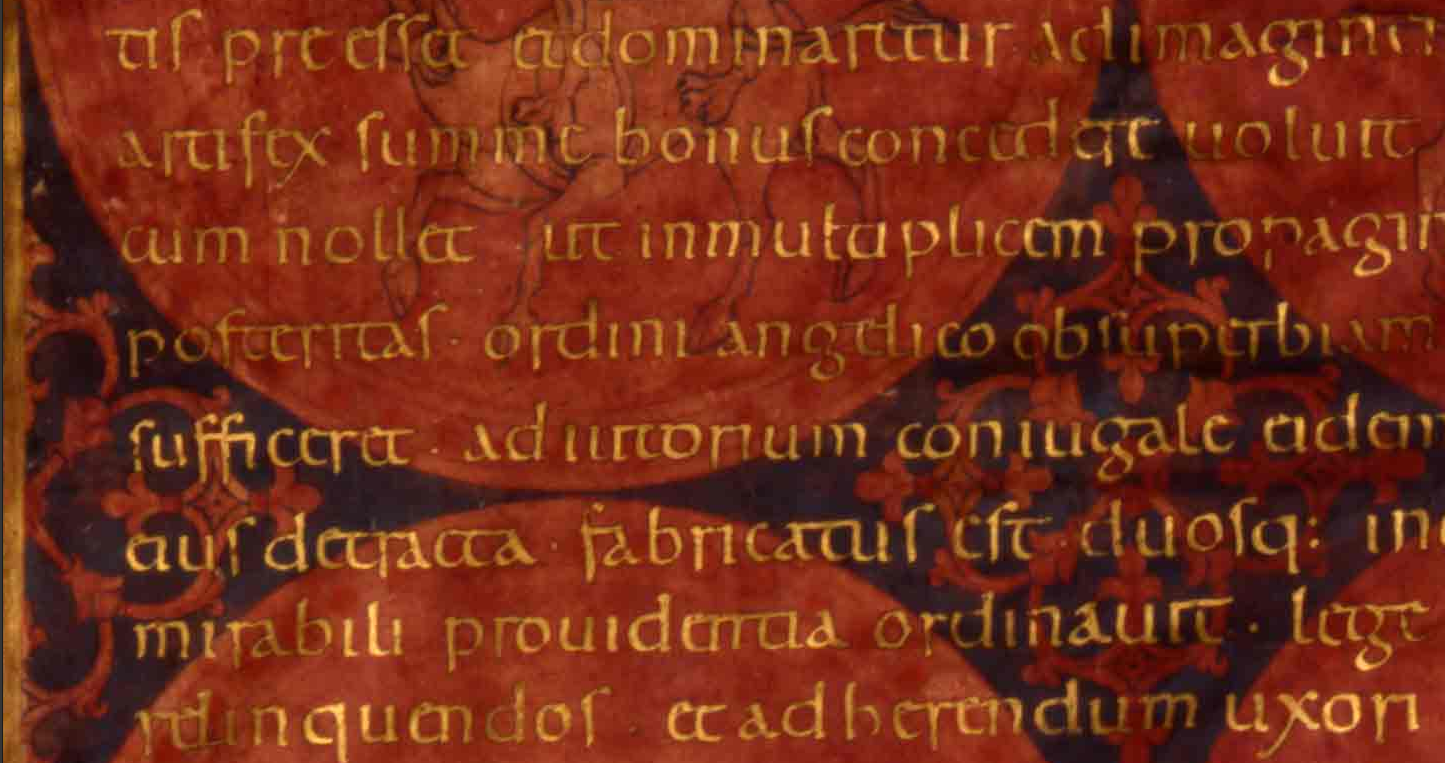 tis preesset et dominaretur ad imaginem
artifex summe bonus concedere uoluit
cum nollet ut inmultiplicem
posteritas · ordini angelico ob superbiam
sufficeret · adiutorium coniugale eidem
eius detracta · fabricatus est · duosq: in
mirabili prouidentia ordinauit · lege
relinquendos · et adherendum uxori